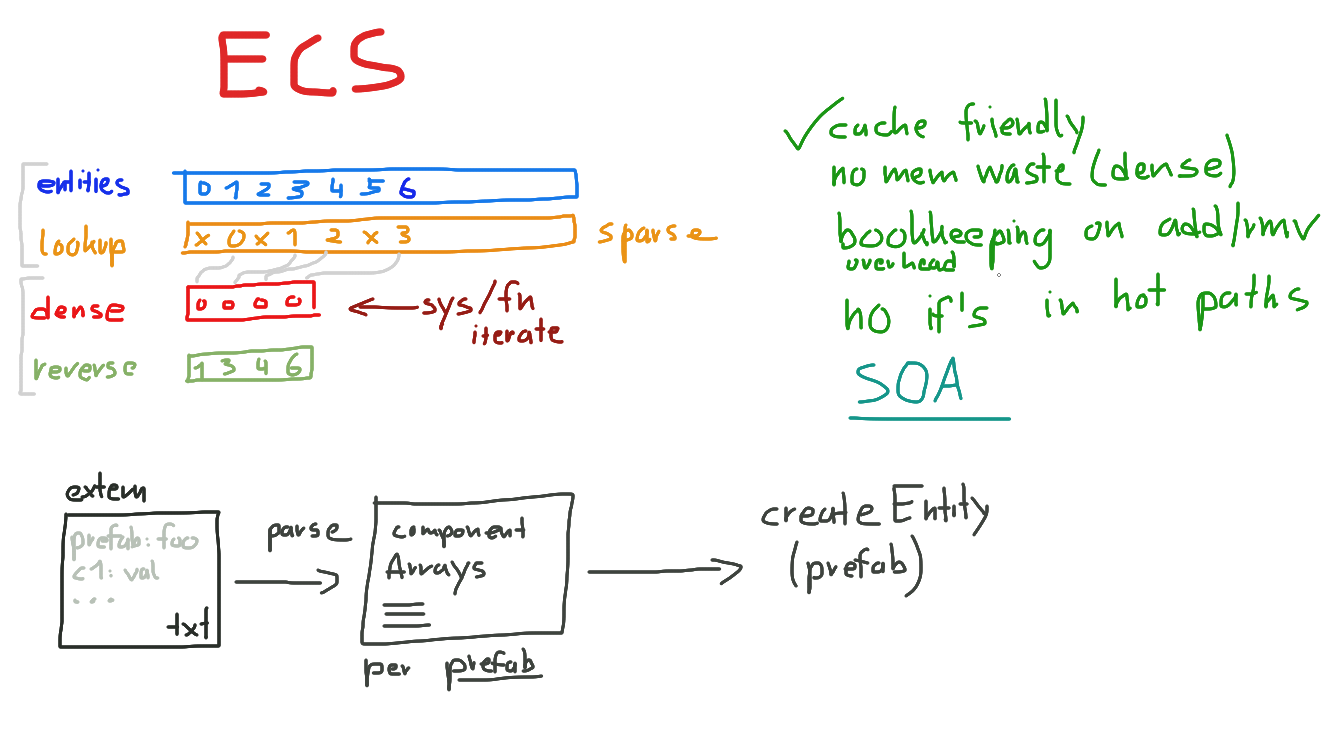 ECS
entities 0 1 2 3 4 5 6
lookup x 0 x 1 2 x 3 sparse
dense 0 0 0 0 ← sys/fn
iterate
reverse 1 3 4 6
✓ cache friendly
no mem waste (dense)
bookkeeping on add/rmv
overhead
no if's in hot paths
SOA
extern
prefab: foo
c1: val
...
txt
parse
component
Arrays
per prefab
create Entity
(prefab)